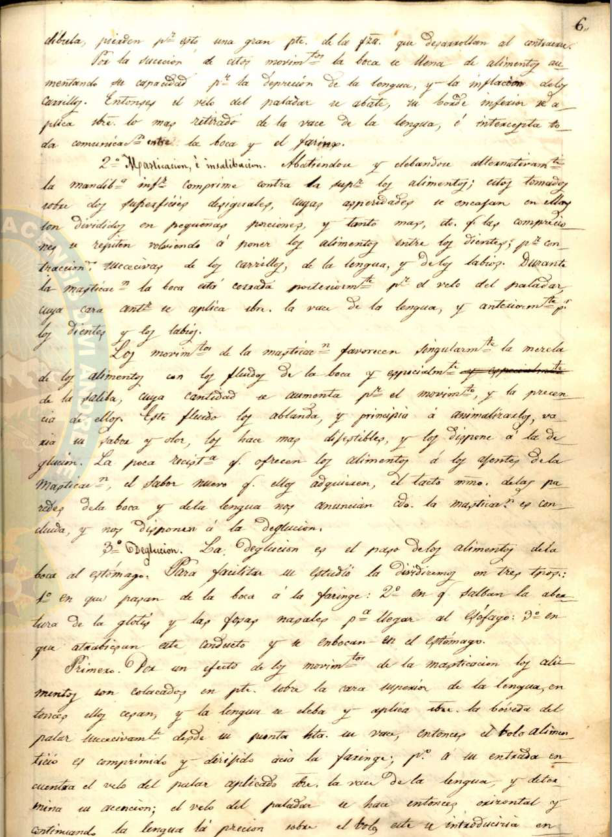 6.
dibula, pierden pr. esto una gran pte. de la fza. que desarrollan al contraerse.
Por la sucecion de estos movimtos. la boca se llena de alimentos au
mentando su capacidad pr. la depresion de la lengua, y la inflacion delos
carrillos. Entonses el velo del paladar se abate, su borde inferior se a
plica sbre. lo mas retirado de la vace de la lengua, é intercepta to_
da comunicacn. entre la boca y el farinx.
2º Masticacion, é insalibacion. Abatiendose y elebandose alternativamte.
la mandiba. infr. comprime contra la supr. los alimentos; estos tomados
sobre dos superficies desiguales, cuyas asperidades se encajan en ellos
son divididos en pequeñas porciones, y tanto mas, de. q. las comprecio
nes se repiten volviendo á poner los alimentos entre los dientes; pr. con
tracciones. sucecivas de los carrillos, de la lengua, y delos labios. Durante
la masticacn. la boca está cerrada posteriormte. pr. el velo del paladar,
cuya cara antr. se aplica sbre. la vace de la lengua, y anteriormte. pr.
los dientes y los labios.
Los movimtos. de la masticacn. favorecen singularmte. la mezcla
de los alimentos con los fluidos de la boca y especialmte.
de la saliba, cuya cantidad se aumenta pr. el movimto. y la precen
cia de ellos. Este fluido los ablanda, y principia á animalizarlos, va_
ria su sabor y olor, los hace mas dijestibles, y los dispone á la de
glucion. La poca recista. q. ofrecen los alimentos á los ajentes dela
masticacn., el sabor nuevo q. ellos adquieren, el tacto mmo. delas pa
redes dela boca y dela lengua nos anuncian cdo. la masticacn. es con
cluida, y nos disponen á la deglucion.
3º Deglucion. La deglucion es el paso delos alimentos dela
boca al estómago. Para facilitar su estudio la dividiremos en tres tpos.:
1º en que pasan de la boca á la faringe: 2º en q. salban la aber
tura de la glotis y las fosas nasales pa. llegar al esófago: 3º en
que atrabiesan este conducto y se enbocan en el estómago.
Primero. Por un efecto de los movimtos. de la masticacion los ali
mentos son colocados en pte. sobre la cara superior de la lengua, en
tonces ellos cesan, y la lengua se eleba y aplica sbre. la boveda del
palar sucecivamte. desde su punta hta. su vace, entonces el bolo alimen
ticio es comprimido y dirijido ácia la faringe; pr. a su entrada en
cuentra el velo del palar aplicado sbre. la vace de la lengua y deter
mina su acencion; el velo del paladar se hace entonces orizontal y
continuando la lengua la precion sobre el bolo, este se introduciria en